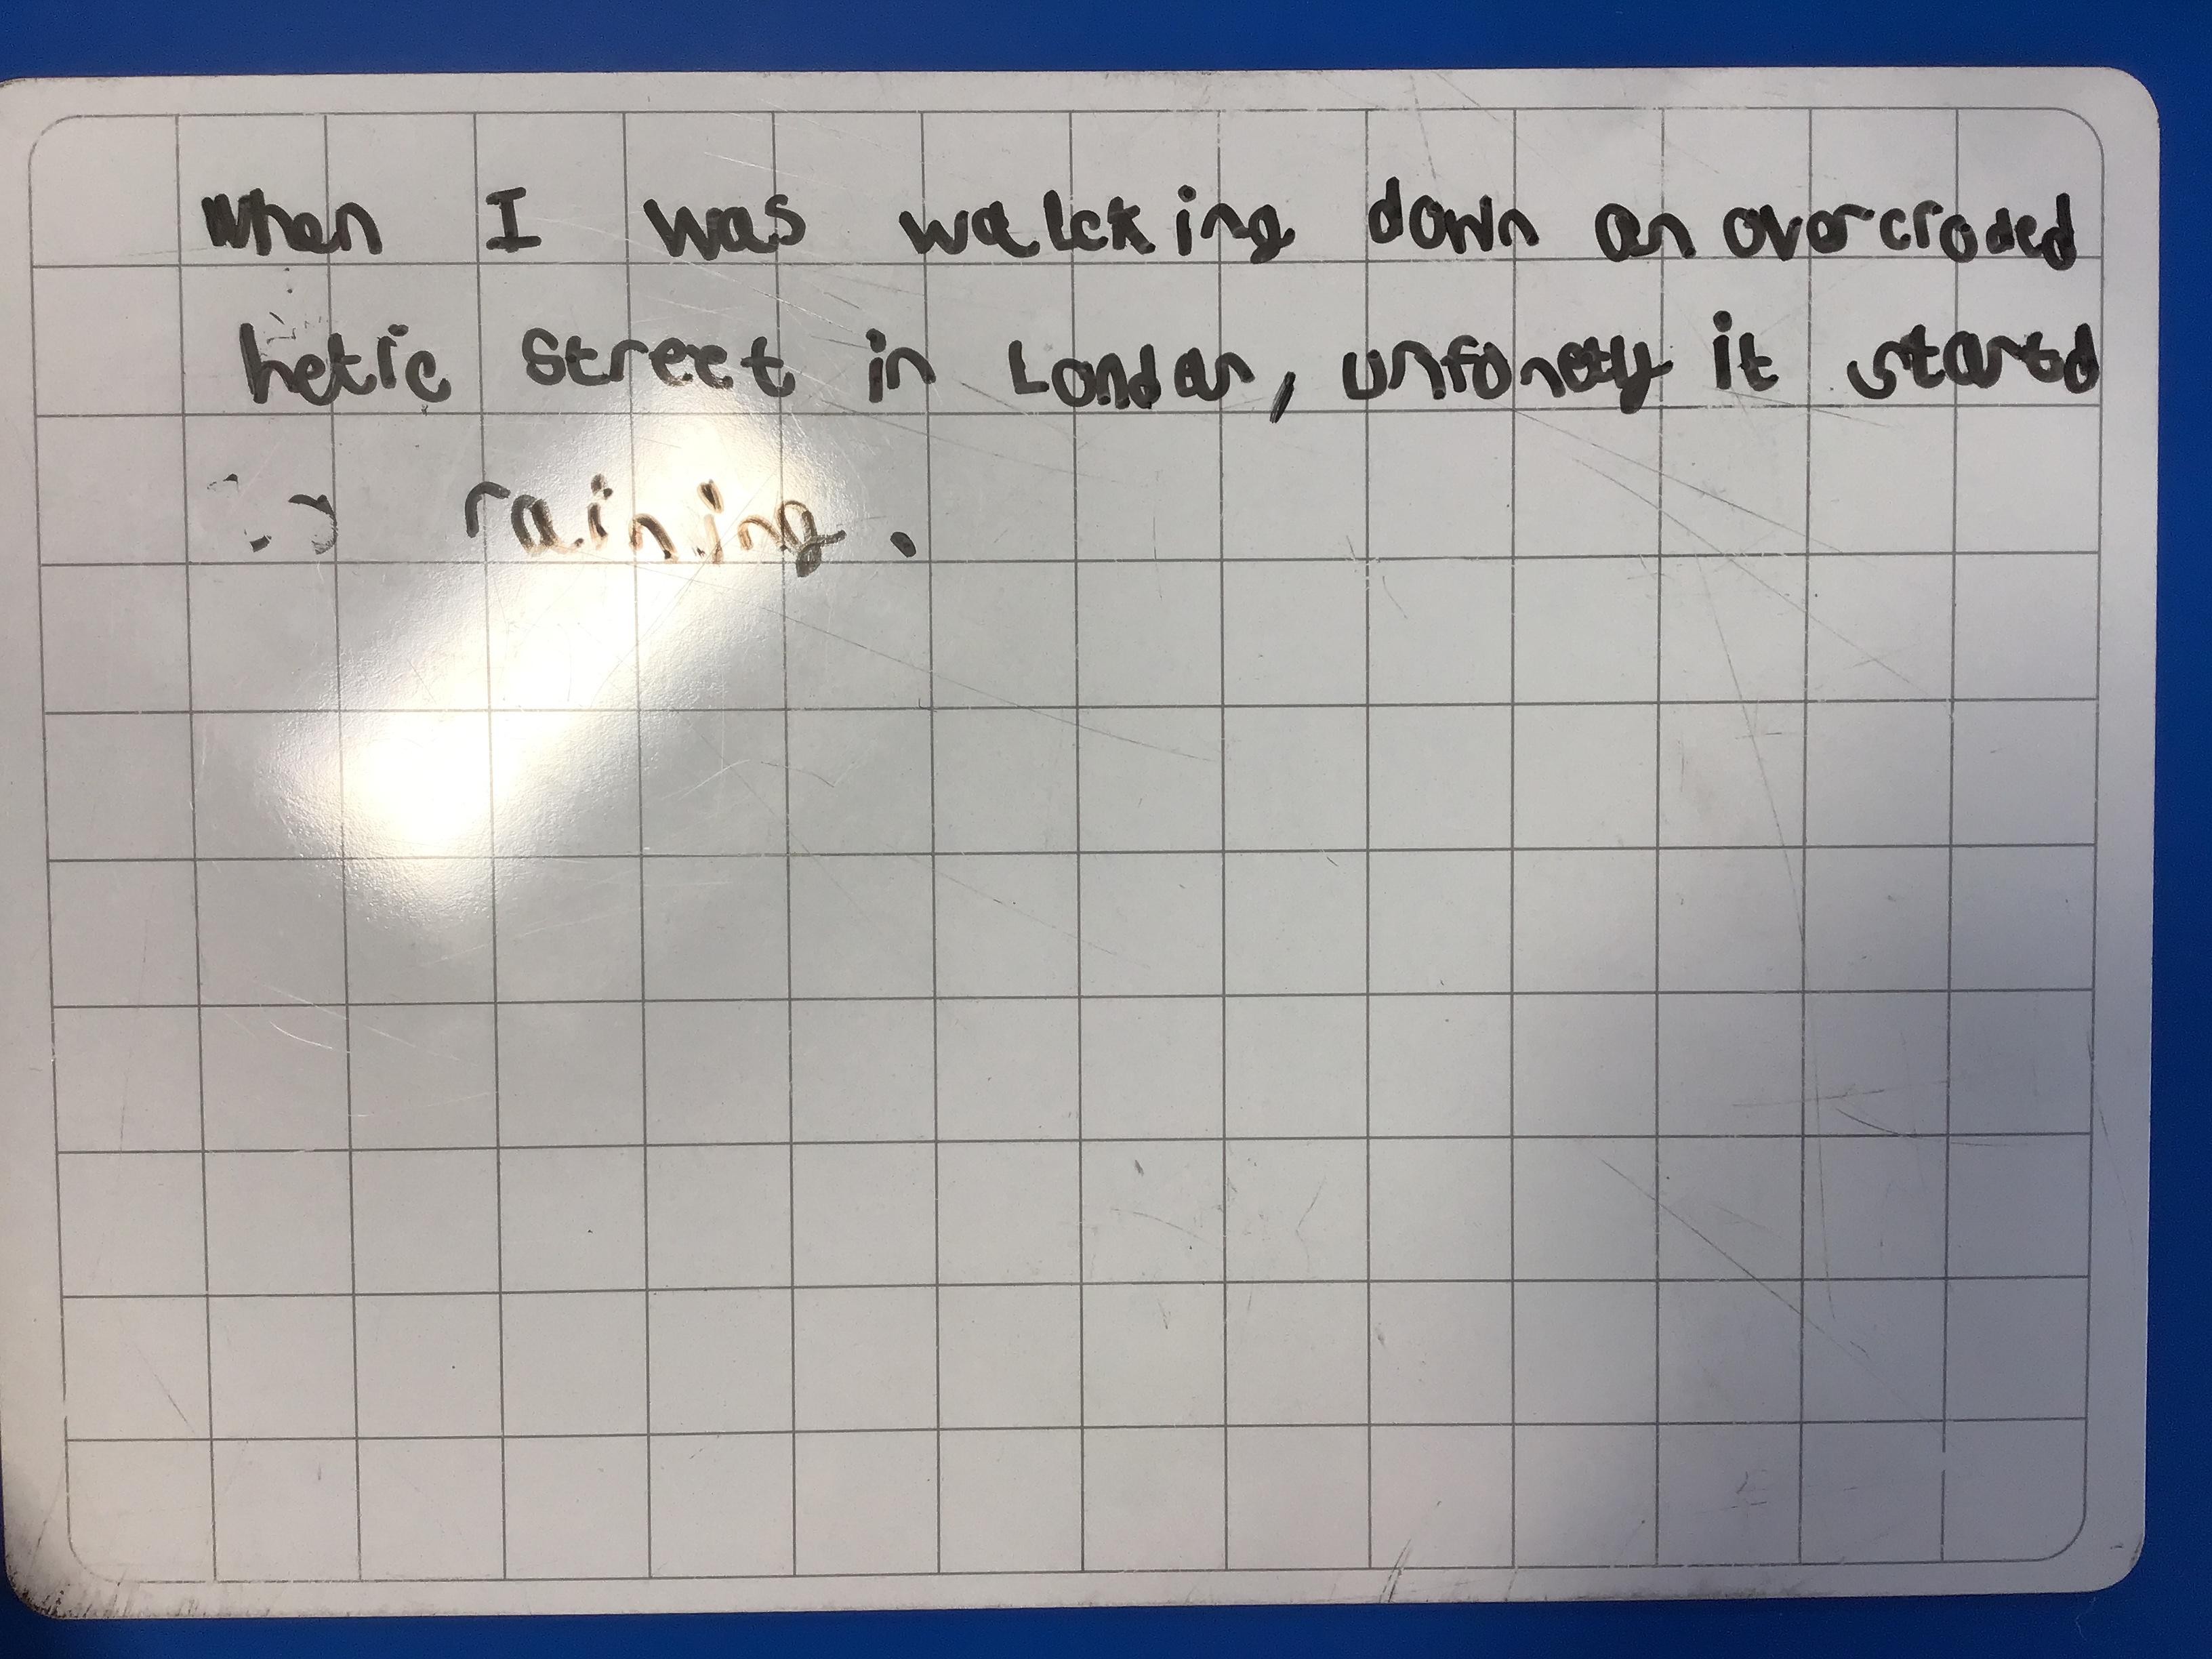 When I was walcking down an overcroded
hetic street in London, unfonetly it startd
raining.